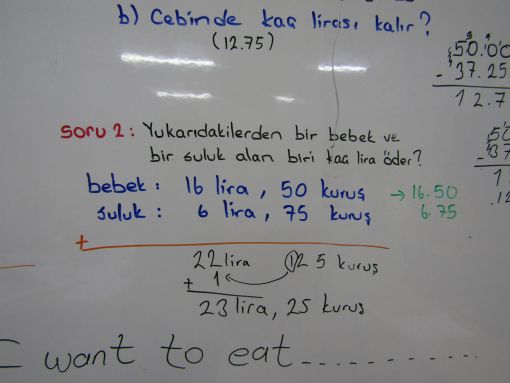 b) Cebinde kaç lirası kalır?
(12.75)
50.00
- 37.25
12.7
Soru 2: Yukarıdakilerden bir bebek ve
bir suluk alan biri kaç lira öder?
bebek: 16 lira, 50 kuruş → 16.50
suluk: 6 lira, 75 kuruş 6.75
+
22 lira 125 kuruş
+ 1
23 lira, 25 kuruş
I want to eat.............